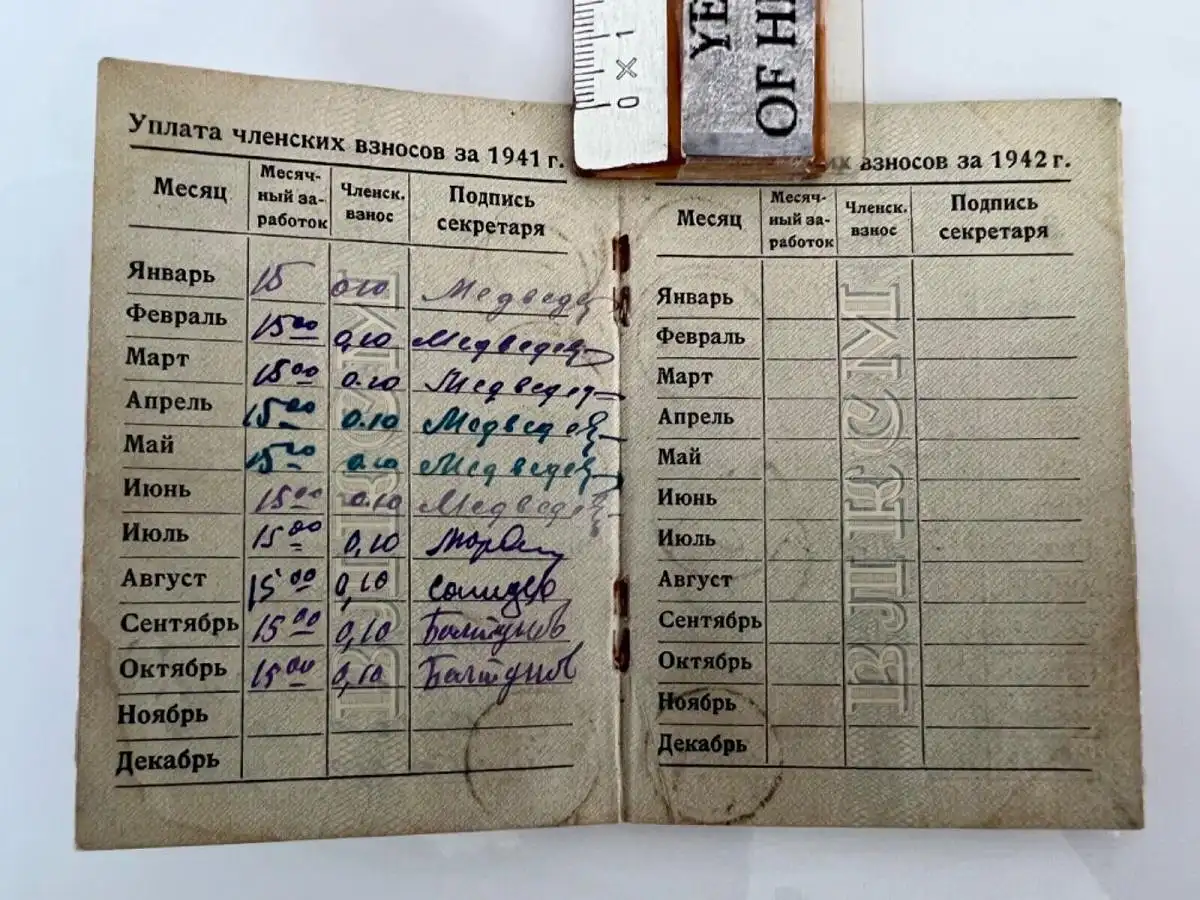 YE
OF HI
0 X 1
Уплата членских взносов за 1941 г.
Месяц Месяч-ный за-работок Членск. взнос Подпись секретаря
Январь 15 0.10 Медведе
Февраль 15 00 0,10 Медведев
Март 15 00 0.10 Медведев
Апрель 15 00 0.10 Медведев
Май 15 00 0.10 Медведев
Июнь 15 00 0.10 Медведев
Июль 15 00 0,10
Август 15 00 0,10
Сентябрь 15 00 0,10 Болтунов
Октябрь 15 00 0,10 Болтунов
Ноябрь
Декабрь
ВЛКСМ
их взносов за 1942 г.
Месяц Месяч-ный за-работок Членск. взнос Подпись секретаря
Январь
Февраль
Март
Апрель
Май
Июнь
Июль
Август
Сентябрь
Октябрь
Ноябрь
Декабрь
ВЛКСМ